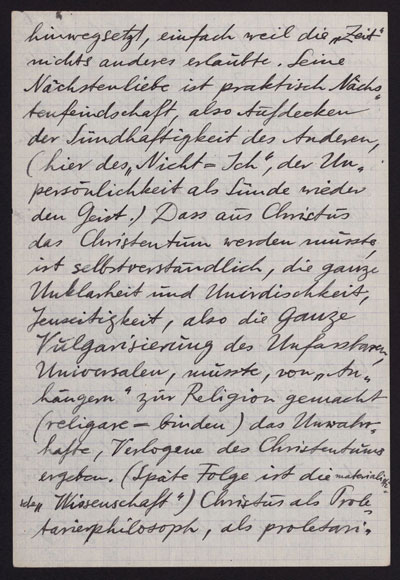 hinwegsetzt, einfach weil die „Zeit"
nichts anderes erlaubte. Seine
Nächstenliebe ist praktisch Nächs„
tenfeindschaft, also Aufdecken
der Sündhaftigkeit des Anderen,
(hier des „Nicht=Ich", der Un„
persönlichkeit als Sünde wieder
den Geist.) Dass aus Christus
das Christentum werden musste,
ist selbstverständlich, die ganze
Unklarheit und Unirdischkeit,
Jenseitigkeit, also die ganze
Vulgarisierung des Unfassbaren,
Universalen, müsste, von „An„
hängern" zur Religion gemacht
(religare = binden) das Unwahr„
hafte, Verlogene des Christentums
ergeben. (Späte Folge ist die materialisti„
sche „Wissenschaft") Christus als Prole„
tarierphilosoph, als proletari„